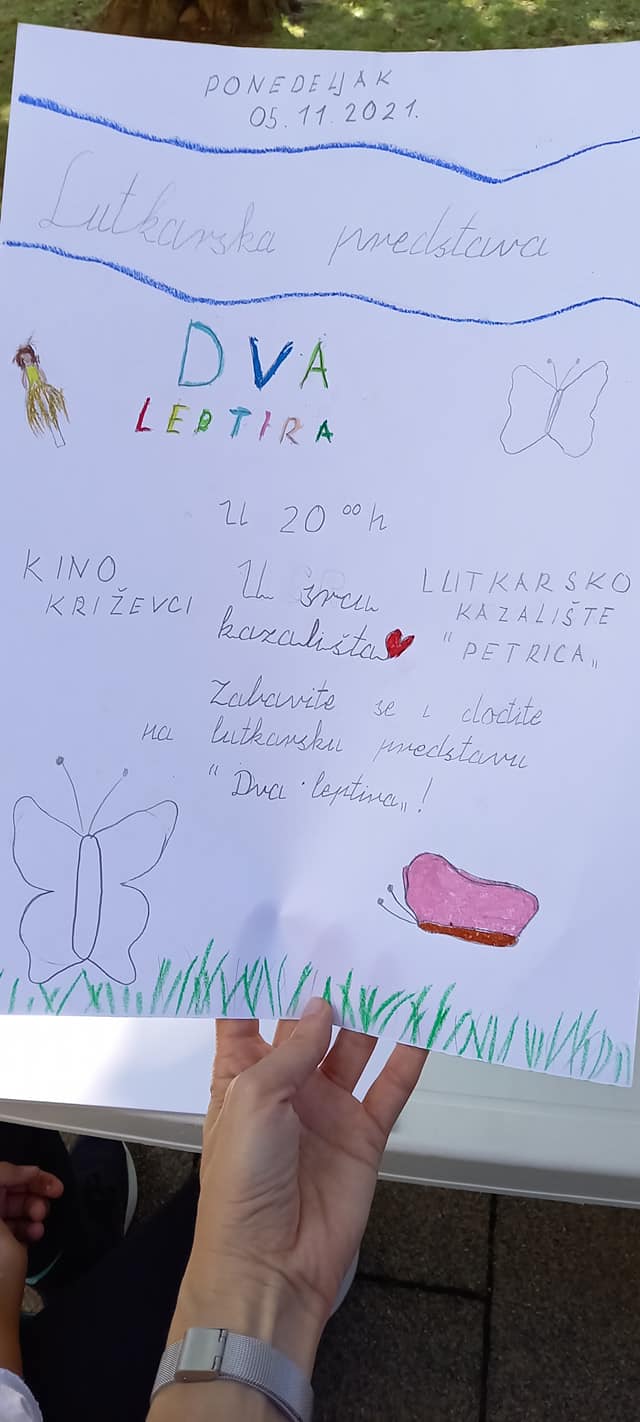 PONEDELJAK
05.11.2021.
Lutkarska predstava
DVA
LEPTIRA
U 20 00 h
KINO
KRIŽEVCI
U srcu
kazališta
LUTKARSKO
KAZALIŠTE
"PETRICA„
Zabavite se i dođite
na lutkarsku predstavu
"Dva leptira„!